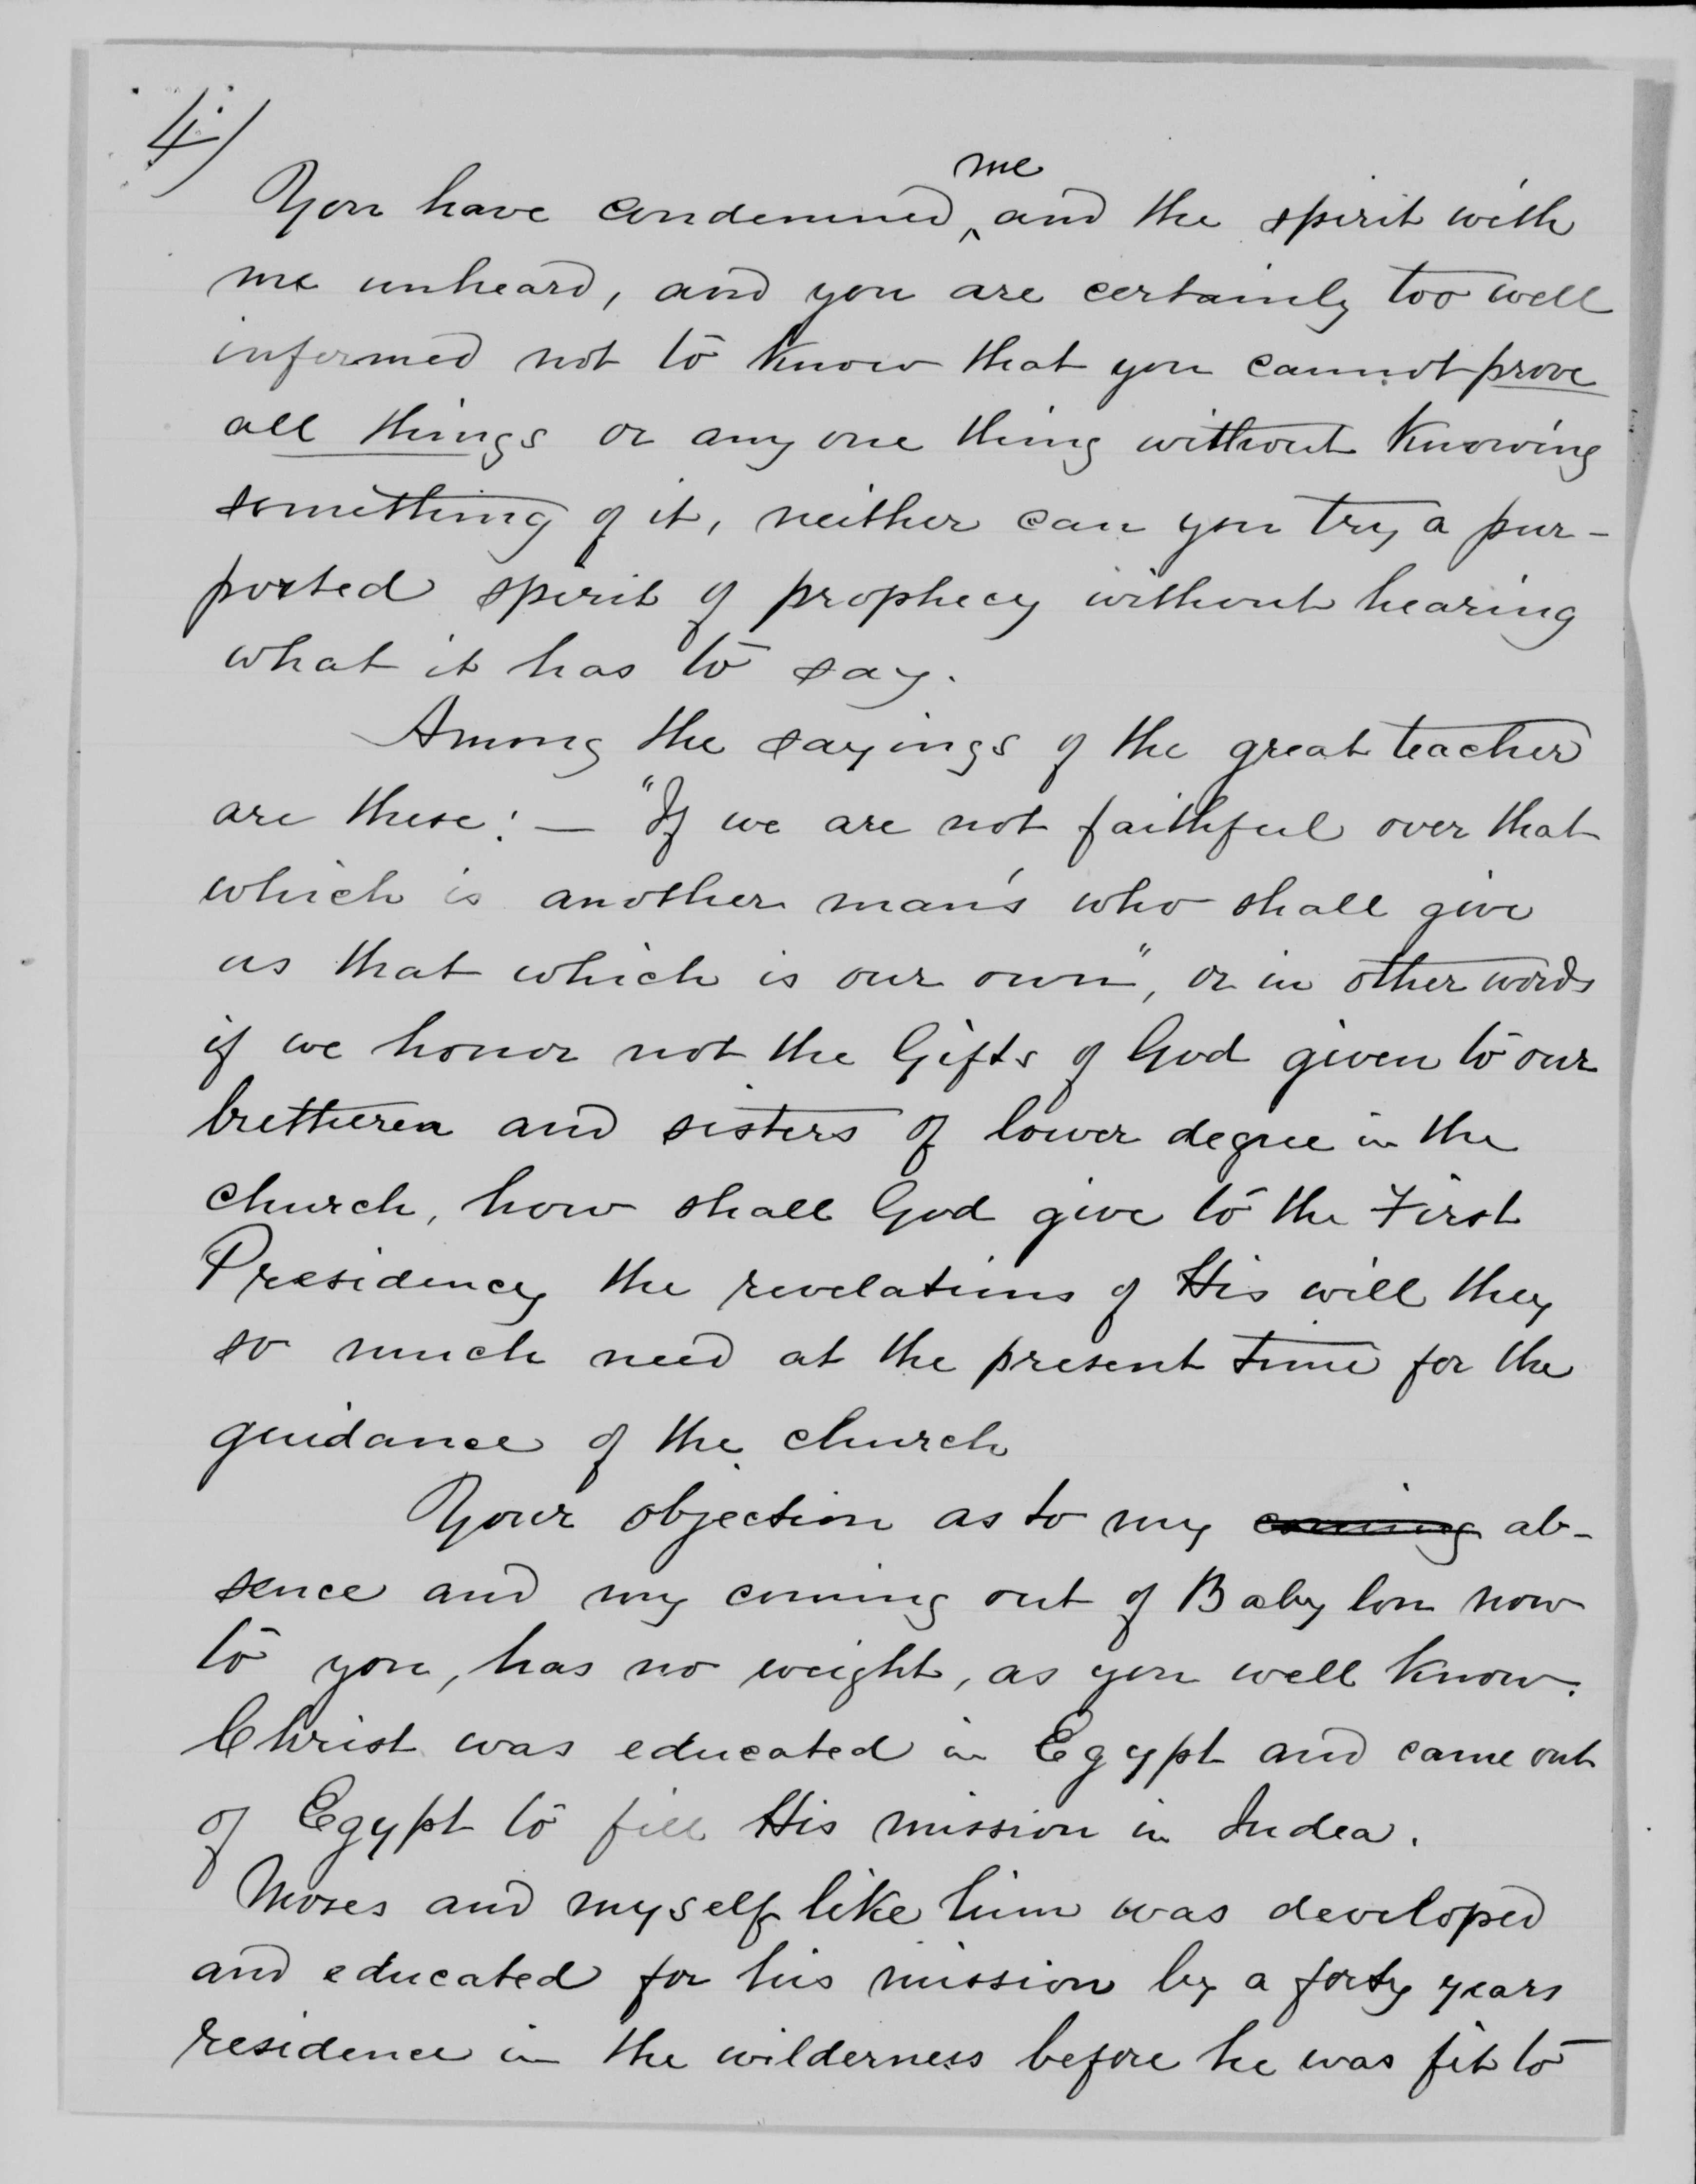 4)
You have condemned me and the spirit with
me unheard, and you are certainly too well
informed not to know that you cannot prove
all things or any one thing without knowing
something of it, neither can you try a pur-
ported spirit of prophecy without hearing
what it has to say.
Among the sayings of the great teacher
are these: — "If we are not faithful over that
which is another man's who shall give
us that which is our own", or in other words
if we honor not the Gifts of God given to our
brettheren and sisters of lower degree in the
church, how shall God give to the First
Presidency the revelations of His will they
so much need at the present time for the
guidance of the church
Your objection as to my coming ab-
sence and my coming out of Babylon now
to you, has no weight, as you well know.
Christ was educated in Egypt and came out
of Egypt to fill His mission in Judea.
Moses and myself like him was developed
and educated for his mission by a forty years
residence in the wilderness before he was fit to